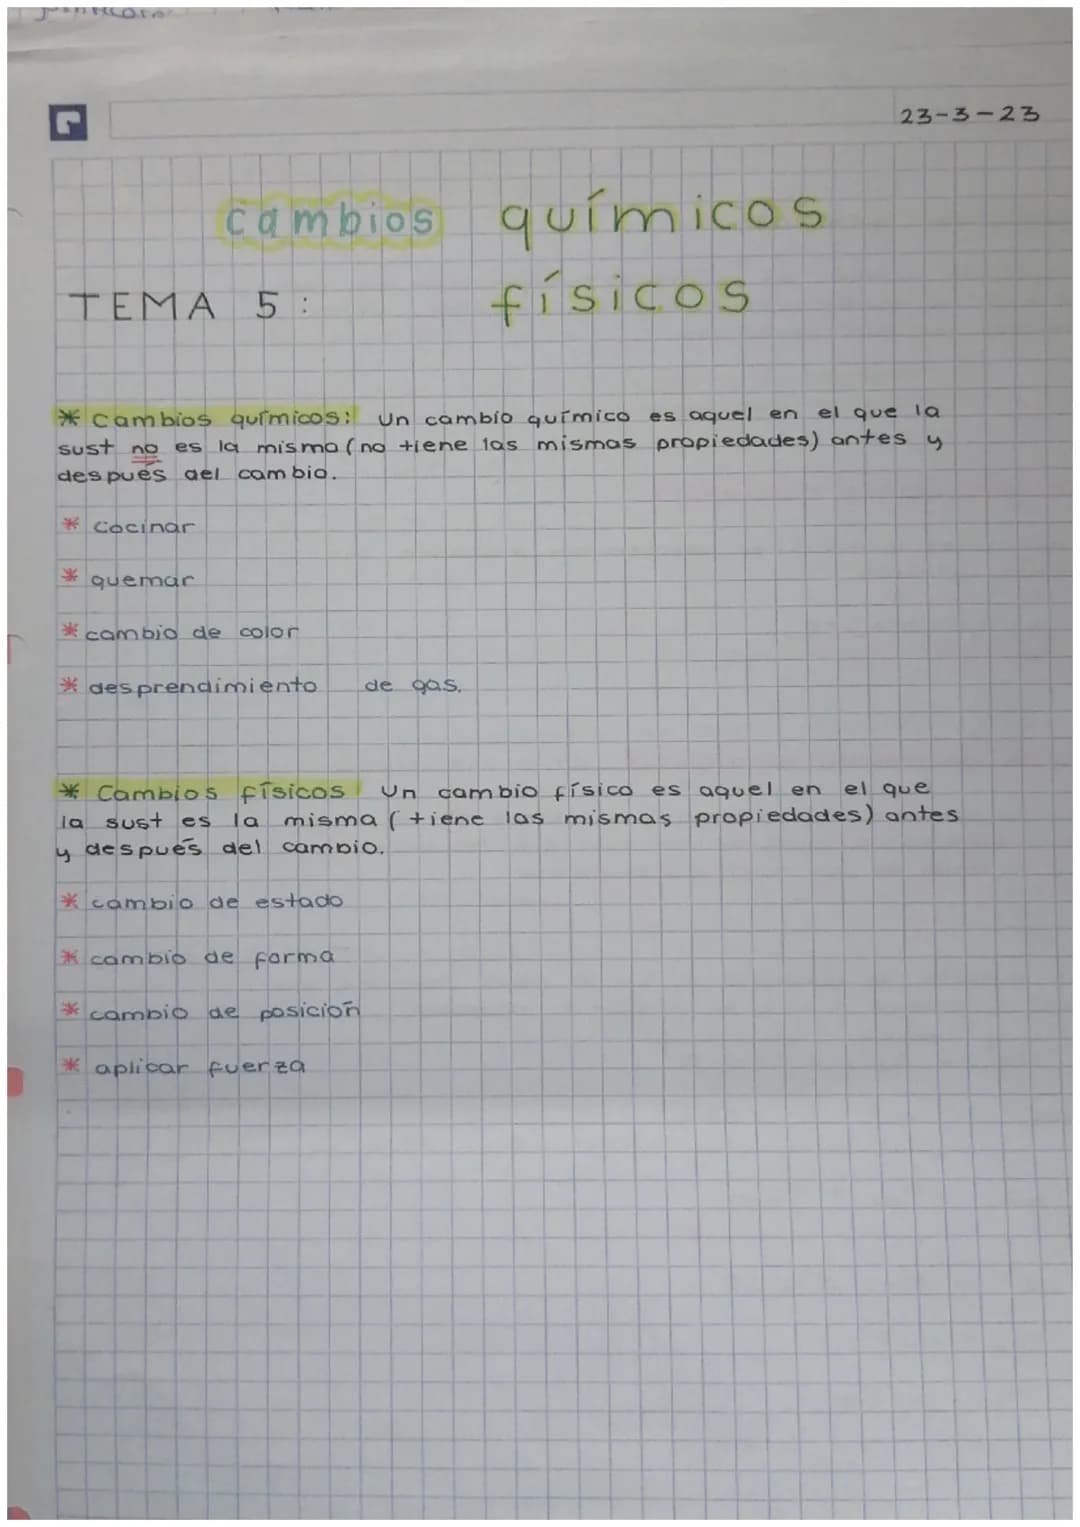 23-3-23
cambios químicos
TEMA 5: físicos
* Cambios químicos: Un cambio químico es aquel en el que la
sust no es la misma (no tiene las mismas propiedades) antes y
después del cambio.
* Cocinar
* quemar
* cambio de color
* desprendimiento de gas.
* Cambios físicos Un cambio físico es aquel en el que
la sust es la misma (tiene las mismas propiedades) antes
y después del cambio.
* cambio de estado
* cambio de forma
* cambio de posición
* aplicar fuerza